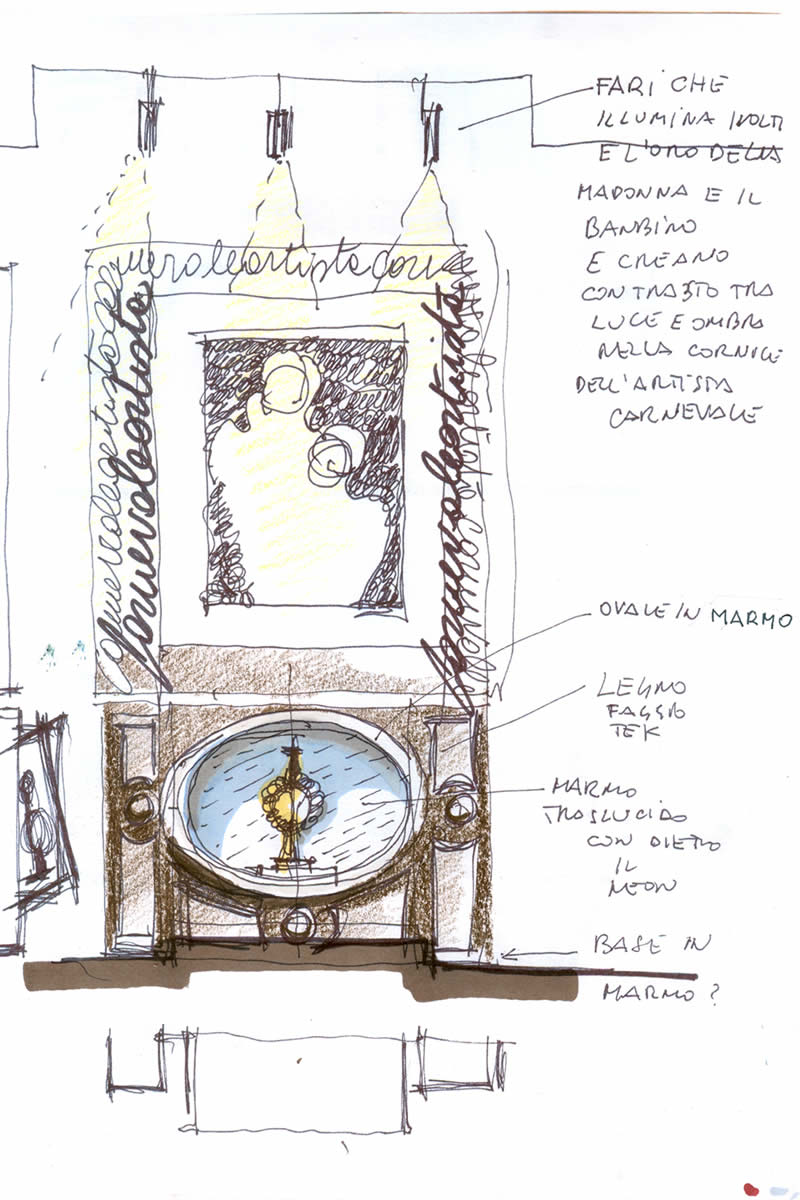 FARI CHE
ILLUMINA I VOLTI
E L'ORO DELLA
MADONNA E IL
BANBINO
E CREANO
CONTRASTO TRA
LUCE E OMBRA
NELLA CORNICE
DELL'ARTISTA
CARNEVALE
OVALE IN MARMO
LEGNO
FAGGIO
TEK
MARMO
TRASLUCIDO
CON DIETRO
IL
NEON
BASE IN
MARMO?